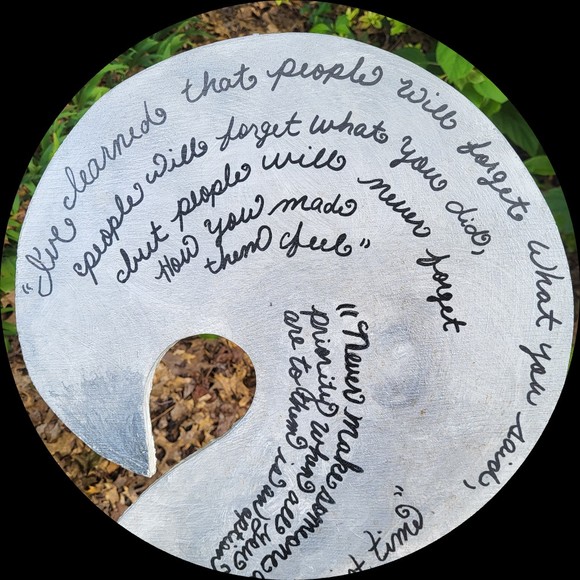 "I've learned that people will forget what you said,
people will forget what you did,
but people will never forget
How you made
them feel"
"Never make someone
priority when all you
are to them is an option